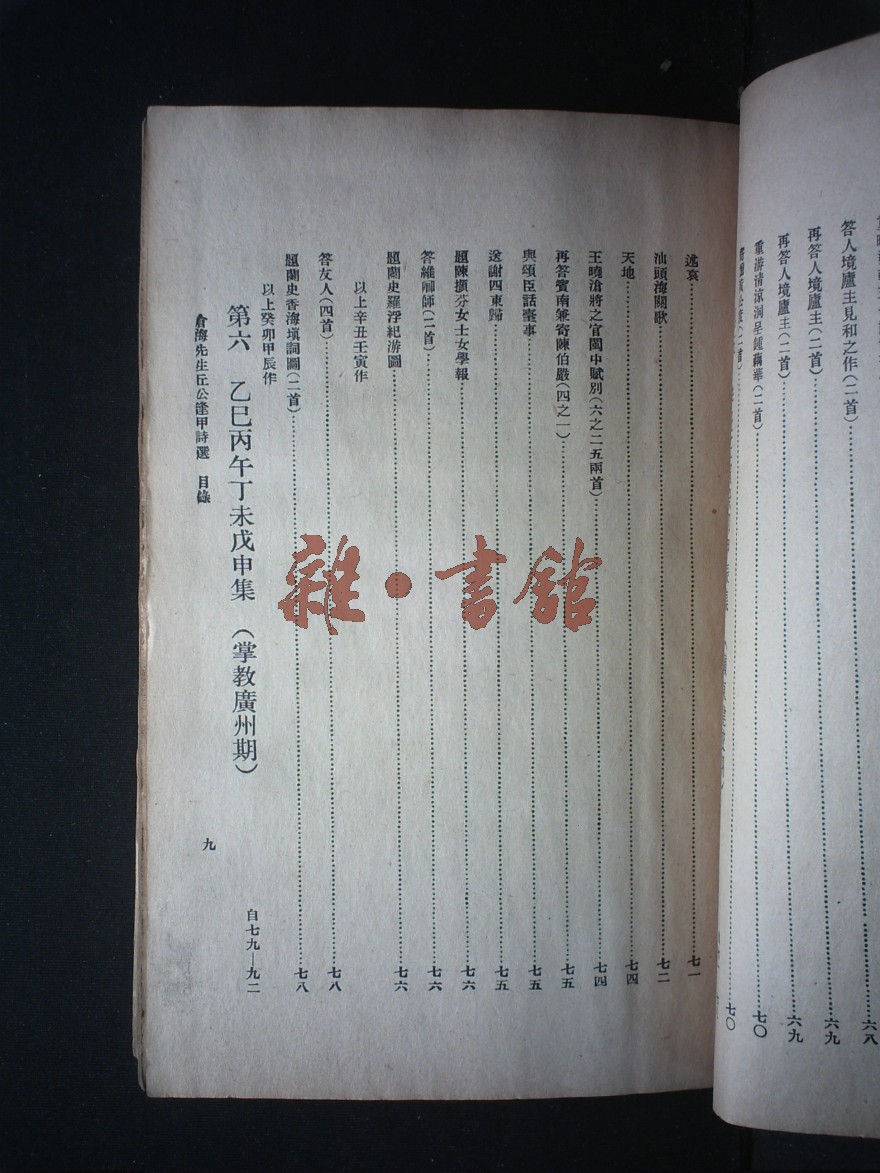 答人境廬主見和之作(二首)⋯⋯六八
再答人境廬主(二首)⋯⋯六九
再答人境廬主(二首)⋯⋯六九
重游清涼洞呈鍾藕華(二首)⋯⋯七〇
七〇
述哀⋯⋯七一
汕頭海關歌⋯⋯七二
天地⋯⋯七四
王曉滄將之官閩中賦別(六之二五兩首)⋯⋯七四
再答賓南兼寄陳伯嚴(四之一)⋯⋯七五
與頌臣話臺事⋯⋯七五
送謝四東歸⋯⋯七五
題陳擷芬女士女學報⋯⋯七六
答維卿師(二首)⋯⋯七六
題蘭史羅浮紀游圖⋯⋯七六
以上辛丑壬寅作
答友人(四首)⋯⋯七八
題蘭史香海填詞圖(二首)⋯⋯七八
以上癸卯甲辰作
第六 乙巳丙午丁未戊申集 (掌教廣州期) 自七九—九二
倉海先生丘公逢甲詩選 目錄 九
雜·書館